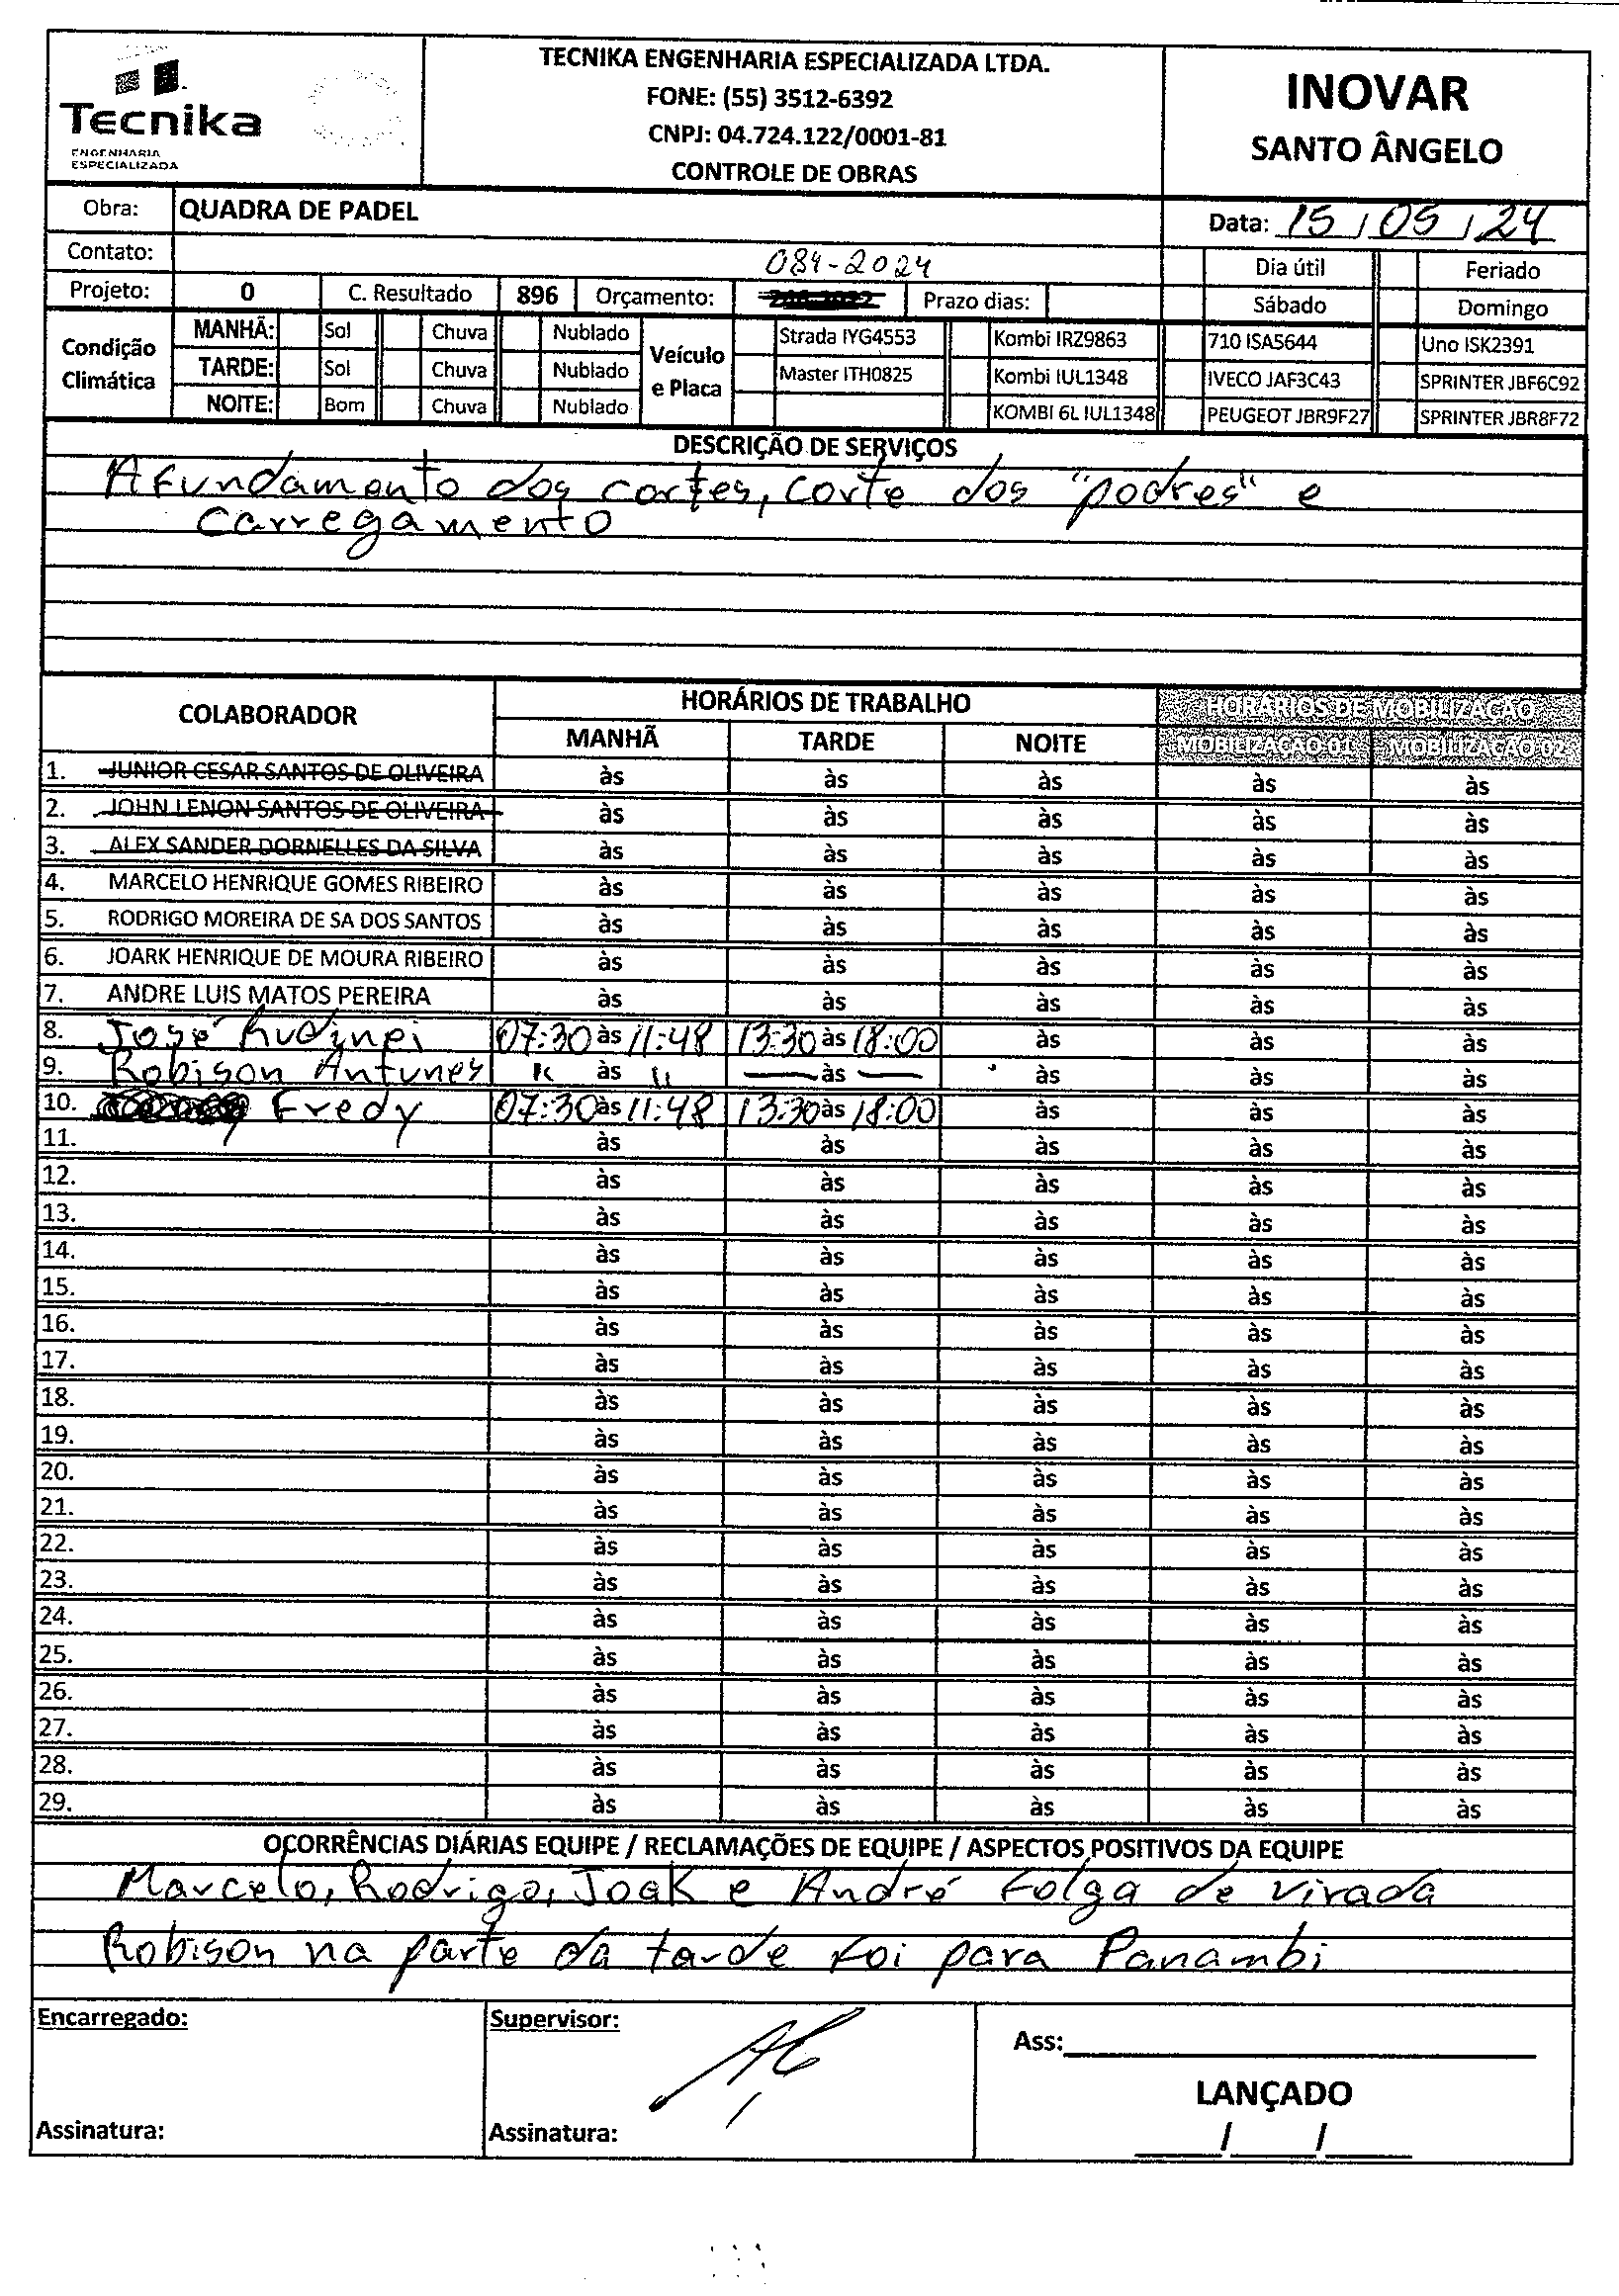 Tecnika
ENGENHARIA
ESPECIALIZADA
TECNIKA ENGENHARIA ESPECIALIZADA LTDA.
FONE: (55) 3512-6392
CNPJ: 04.724.122/0001-81
CONTROLE DE OBRAS
INOVAR
SANTO ÂNGELO
Obra: QUADRA DE PADEL
Data: 15/05/24
Contato:
084-2024
Dia útil Feriado
Projeto: 0 C. Resultado 896 Orçamento: Prazo dias:
Sábado Domingo
Condição Climática
MANHÃ: Sol Chuva Nublado
TARDE: Sol Chuva Nublado
NOITE: Bom Chuva Nublado
Veículo e Placa
Strada IYG4553 Kombi IRZ9863 710 ISA5644 Uno ISK2391
Master ITH0825 Kombi IUL1348 IVECO JAF3C43 SPRINTER JBF6C92
KOMBI 6L IUL1348 PEUGEOT JBR9F27 SPRINTER JBR8F72
DESCRIÇÃO DE SERVIÇOS
Afundamento dos cortes, corte dos "podres" e
carregamento
COLABORADOR
HORÁRIOS DE TRABALHO
HORÁRIOS DE MOBILIZAÇÃO
MANHÃ TARDE NOITE MOBILIZAÇÃO 01 MOBILIZAÇÃO 02
1. JUNIOR CESAR SANTOS DE OLIVEIRA às às às às às
2. JOHN LENON SANTOS DE OLIVEIRA às às às às às
3. ALEX SANDER DORNELLES DA SILVA às às às às às
4. MARCELO HENRIQUE GOMES RIBEIRO às às às às às
5. RODRIGO MOREIRA DE SA DOS SANTOS às às às às às
6. JOARK HENRIQUE DE MOURA RIBEIRO às às às às às
7. ANDRE LUIS MATOS PEREIRA às às às às às
8. José Rudinei 07:30 às 11:48 13:30 às 18:00 às às às
9. Robison Antunes " às " — às — às às às
10. Fredy 07:30 às 11:48 13:30 às 18:00 às às às
11. às às às às às
12. às às às às às
13. às às às às às
14. às às às às às
15. às às às às às
16. às às às às às
17. às às às às às
18. às às às às às
19. às às às às às
20. às às às às às
21. às às às às às
22. às às às às às
23. às às às às às
24. às às às às às
25. às às às às às
26. às às às às às
27. às às às às às
28. às às às às às
29. às às às às às
OCORRÊNCIAS DIÁRIAS EQUIPE / RECLAMAÇÕES DE EQUIPE / ASPECTOS POSITIVOS DA EQUIPE
Marcelo, Rodrigo, Joak e André Folga de virada
Robison na parte da tarde foi para Panambi
Encarregado:
Supervisor:
Ass:
LANÇADO
Assinatura:
Assinatura:
___/___/___